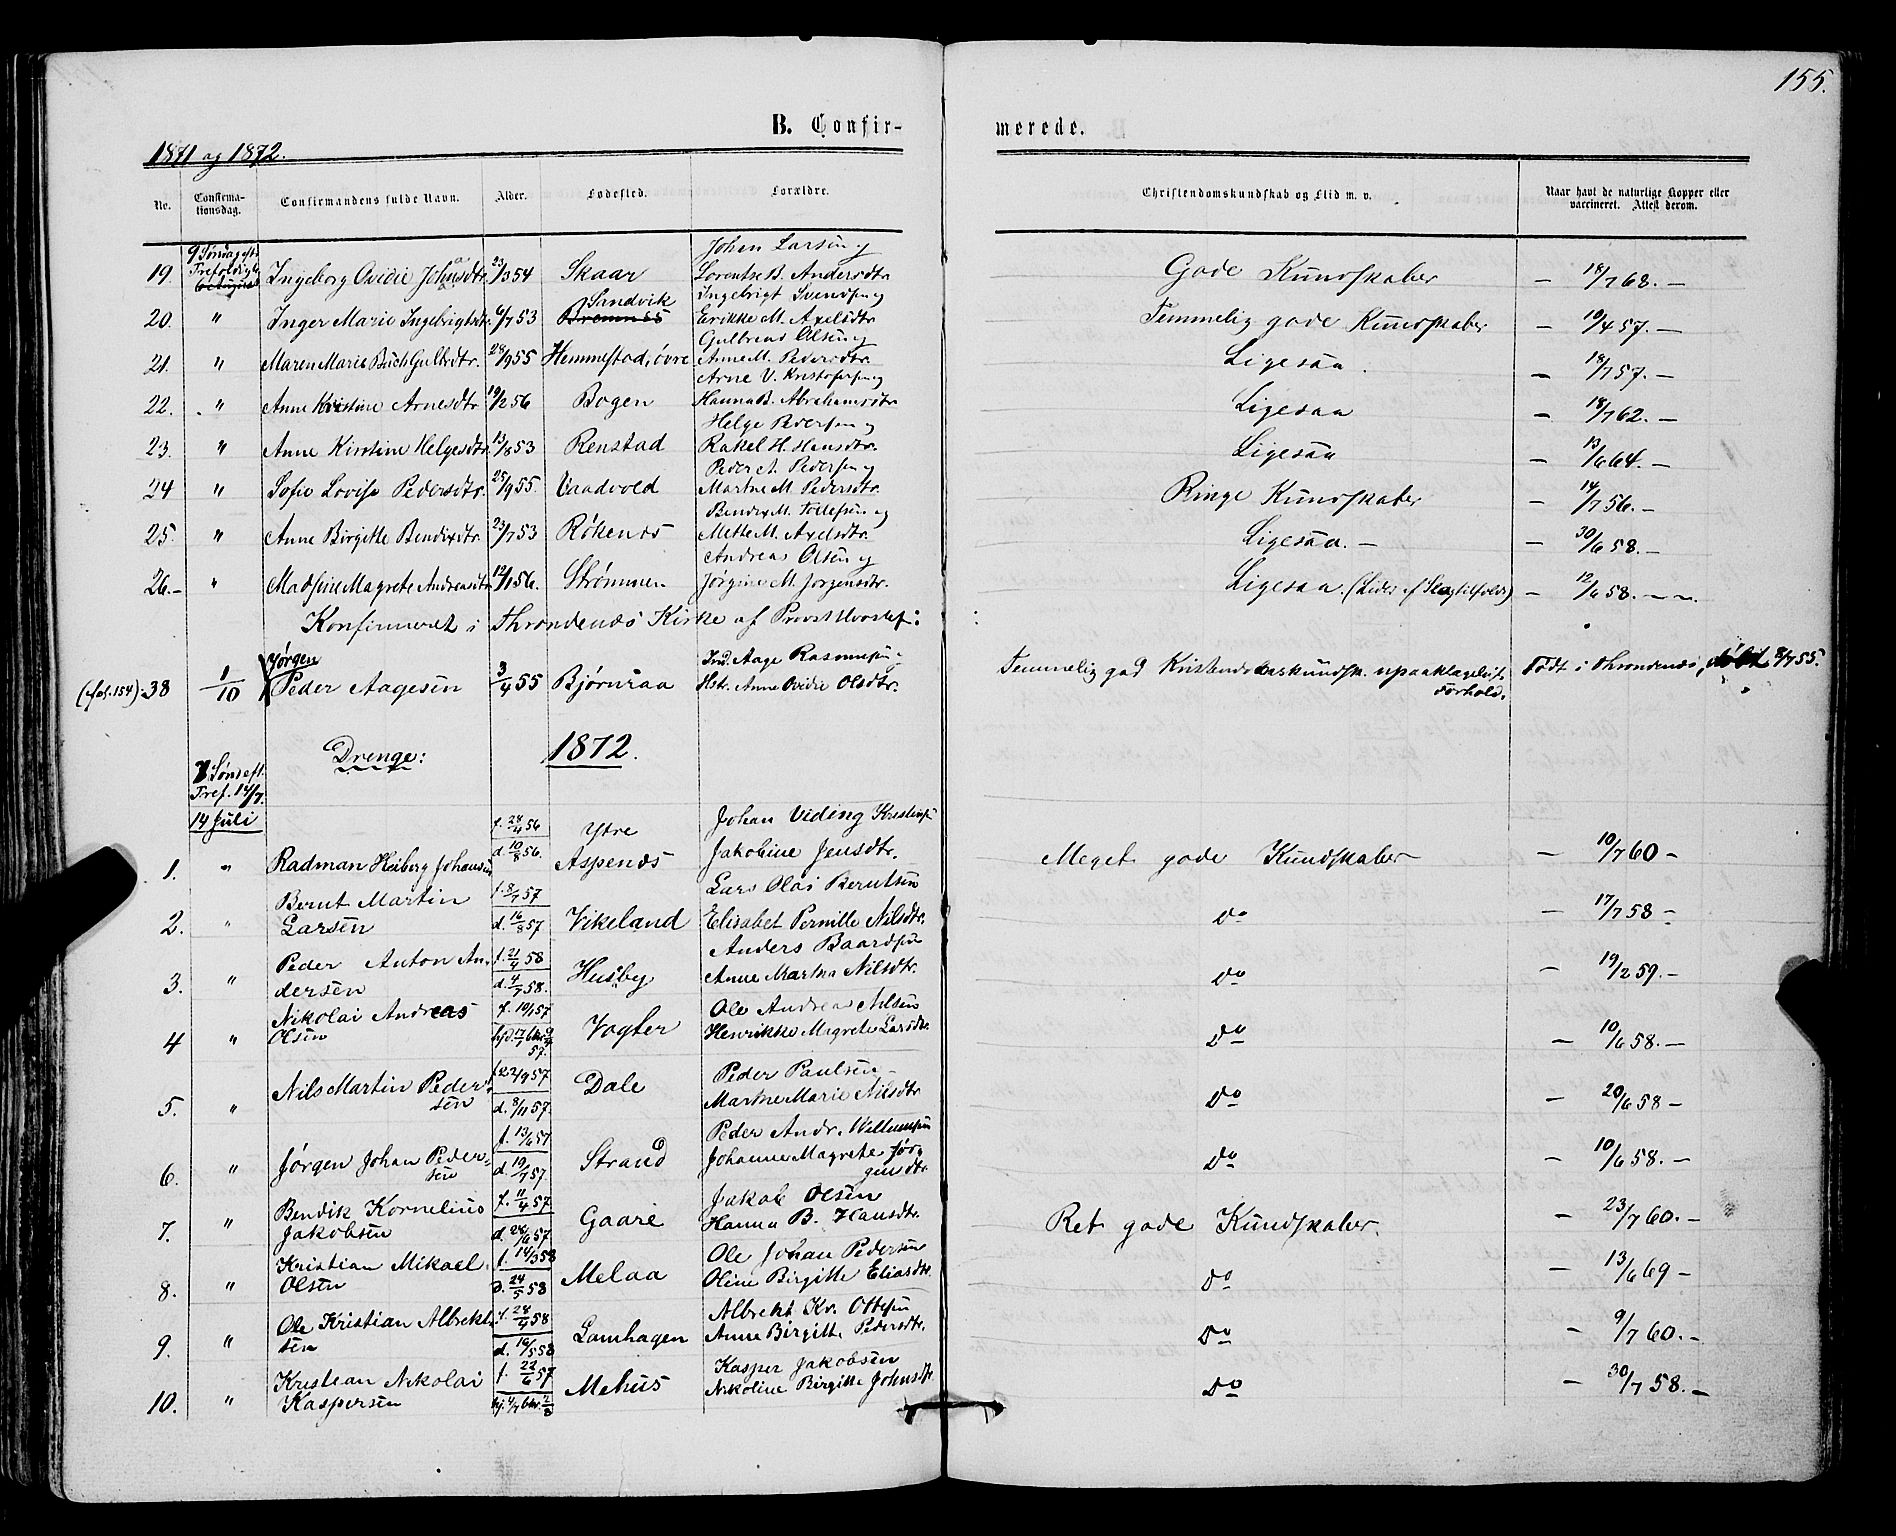 155.
B. Confir-
merede.
1871 og 1872.
No.
Confirma-
tionsdag.
Confirmandens fulde Navn.
Alder.
Fødested.
Forældre.
Christendomskundskab og Flid m. v.
Naar havt de naturlige Kopper eller
vaccineret. Attest derom.
9 Søndag eft.
Trefoldigh.
19. Ingeborg Ovidie Johansdtr. 23/3 54 Skaar Johan Larsen og
Lorentse B. Andersdtr. Gode Kundskaber — 18/7 68. —
20. " Inger Marie Ingebrigtsdtr. 6/7 53 Sandvik Bremnes Ingebrigt Svendsen og
Erikke M. Axelsdtr. Temmelig gode Kundskaber — 19/4 57. —
21. " Maren Marie Buch Gulbrdtr. 28/9 55 Hemmestad, övre Gulbrand Olsen og
Anne M. Pedersdtr. Ligesaa. — 18/7 57. —
22. " Anne Kristine Arnesdtr. 19/2 56 Bogen Arne V. Kristofersen og
Hanna B. Abrahamsdtr. Ligesaa — 18/7 62. —
23. " Anne Kirstine Helgesdtr. 13/8 53 Renstad Helge Pedersen og
Rakel H. Hansdtr. Ligesaa — 13/6 64. —
24 " Sofie Lovise Pedersdtr. 25/9 55. Vaadvold Peder A. Pedersen og
Martne M. Pedersdtr. Ringe Kundskaber — 14/7 56. —
25. " Anne Birgitte Bendixdtr. 23/7 53 Rökenes Bendix M. Tollefsen og
Mette M. Axelsdtr. Ligesaa. — — 30/6 58. —
26. — " Madsine Magrete Andreasdtr. 12/1 56. Strømmen Andreas Olsen og
Jørgine M. Jørgensdtr. Ligesaa. (Lider af Slagtilfælde) — 12/6 58. —
Konfirmeret i Throndenes Kirke af Provst
(fol. 154) 38 1/10 Jørgen
Peder Aagesen 3/4 55 Bjørnraa Ind. Aage Rasmussen
Hstr. Anne Ovidie Olsdtr. Temmelig god Kristendomskundsk. upaaklageligt
Forhold. Födt i Throndenes, döbt 8/7 55.
Drenge: 1872.
7 Sönd eft.
Tref. 14/7.
14 Juli
1. " Radman Heiberg Johansen f. 24/4 56
d. 10/8 56. Ytre
Aspenes Johan Viding Kristensen
Jakobine Jensdtr. Meget gode Kundskaber — 10/7 60 —
2. " Bernt Martin
Larsen f. 8/7 57
d. 16/8 57 Vikeland Lars Olai Berntsen
Elisabet Pernille Nilsdtr. Do — 17/7 58 —
3. " Peder Anton An-
dersen f. 21/4 58
d. 4/7 58. Husby Anders Baardsen
Anne Martha Nilsdtr. Do — 19/2 59. —
4 " Nikolai Andreas
Olsen f. 10/1 57
57. Vogter Ole Andreas Nilsen
Henrikke Magrete Larsdtr. Do — 10/6 58. —
5. " Nils Martin Peder-
sen f. 22/9 57
d. 8/11 57. Dale Peder Paulsen
Martne Marie Nilsdtr Do — 20/6 58 —
6. " Jørgen Johan Peder-
sen f. 13/6 57
d. 19/7 57. Strand Peder Andr. Willumsen
Johanne Magrete Jör-
gensdtr Do — 10/6 58. —
7. " Bendik Kornelius
Jakobsen f. 11/4 57
d. 24/6 57. Gaare Jakob Olsen
Hanna B. Hansdtr. Ret gode Kundskaber. — 23/7 60. —
8. " Kristian Mikael
Olsen f. 14/3 58
d. 24/5 58 Melaa Ole Johan Pedersen
Oline Birgitte Eliasdtr. Do — 13/6 69 —
9. " Ole Kristian Albrekt-
sen f. 28/4 58
d. 19/5 58 Lamhagen Albrekt Kr. Ottesen
Anne Birgitte Pedersdtr. Do — 9/7 60. —
10. " Kristian Nikolai
Kaspersen f. 22/6 57 Mehus Kasper Jakobsen
Nikoline Birgitte Johnsdtr. Do — 30/7 58. —